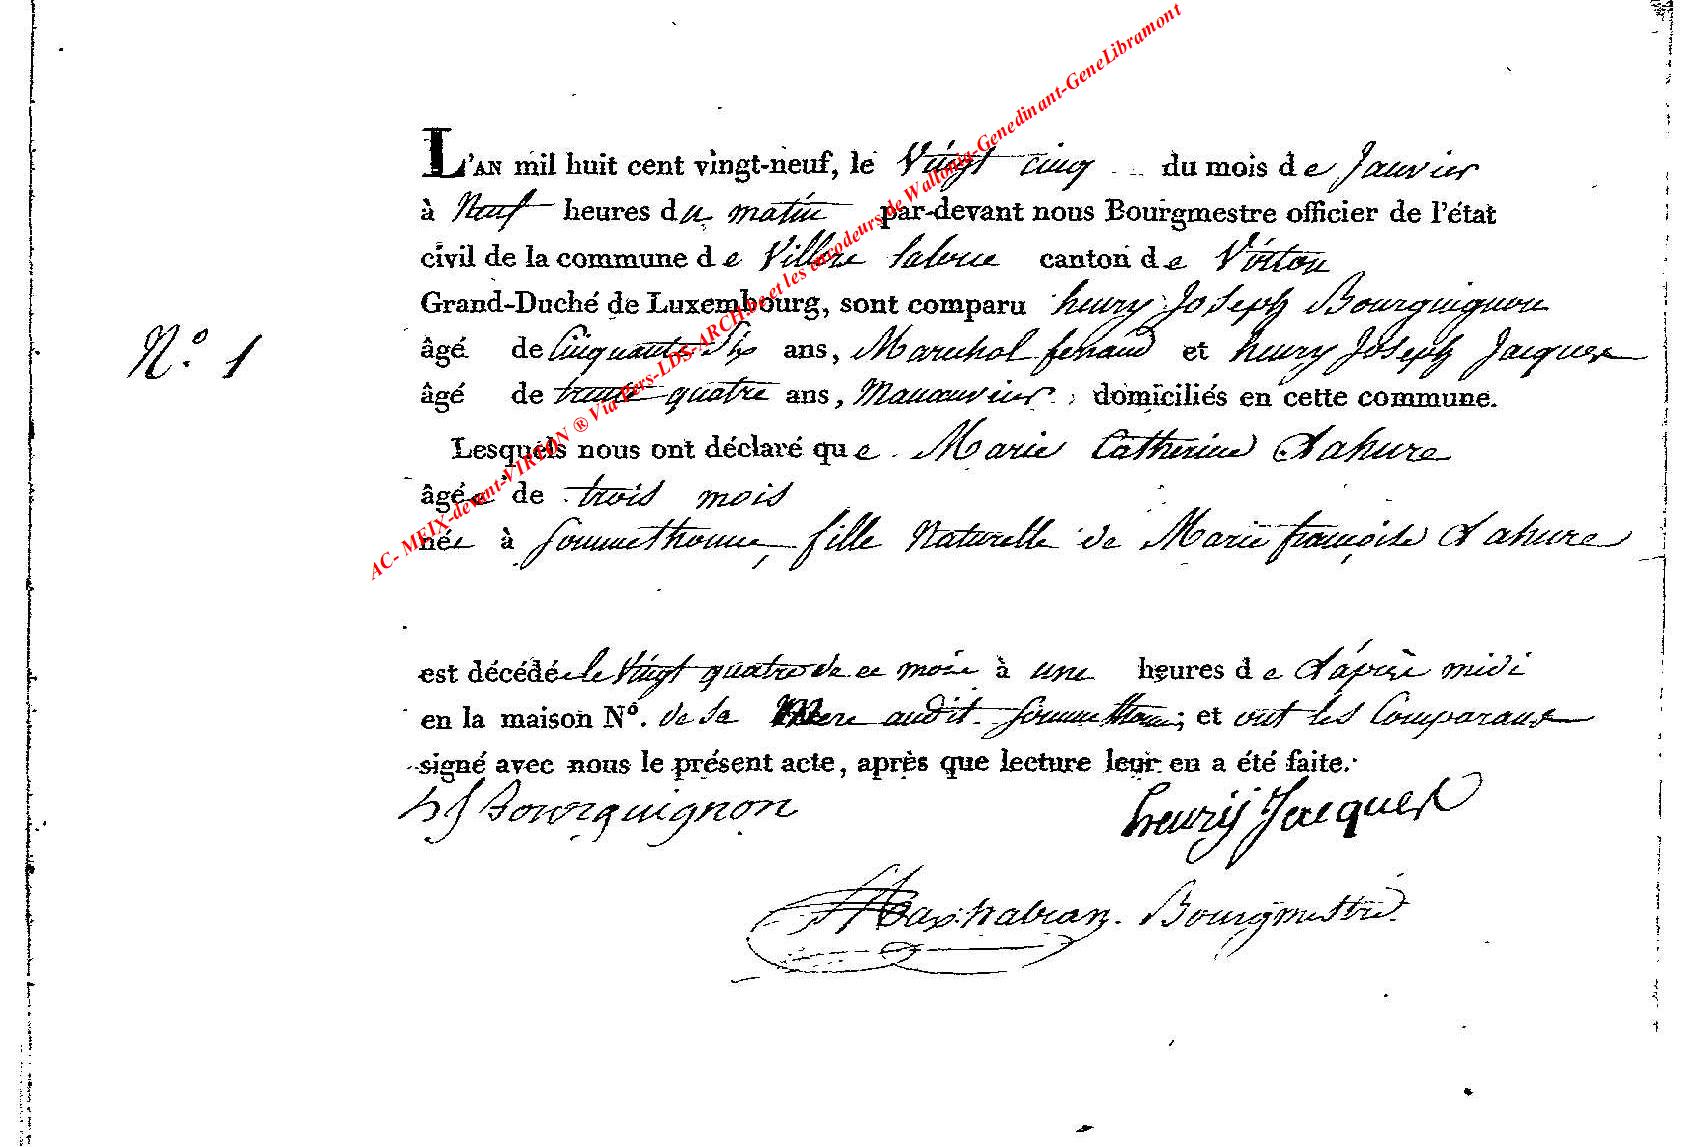 L'AN mil huit cent vingt-neuf, le Vingt cinq du mois de Janvier
à Neuf heures du matin par-devant nous Bourgmestre officier de l'état
civil de la commune de Villers laloue canton de Virton
Grand-Duché de Luxembourg, sont comparu henry Joseph Bourguignon
N.° 1
âgé de Cinquante Six ans, Marechal ferrand et henry Joseph Jacques
âgé de trente quatre ans, Manouvrier domiciliés en cette commune.
Lesquels nous ont déclaré que Marie Catherine Lahure
âgée de trois mois
née à Sommethonne, fille Naturelle de Marie françoise Lahure
est décédée le Vingt quatre de ce mois à une heures de L'après midi
en la maison N°. de sa Mere audit Sommethonne, et ont les Comparans
signé avec nous le présent acte, après que lecture leur en a été faite.
hJ Bourguignon henrij Jacques
Bourgmestre.
AC- MEIX-devant-VIRTON ® Via Pers-LDS-ARCH.be et les encodeurs de Wallonia-Genedinant-GeneLibramont